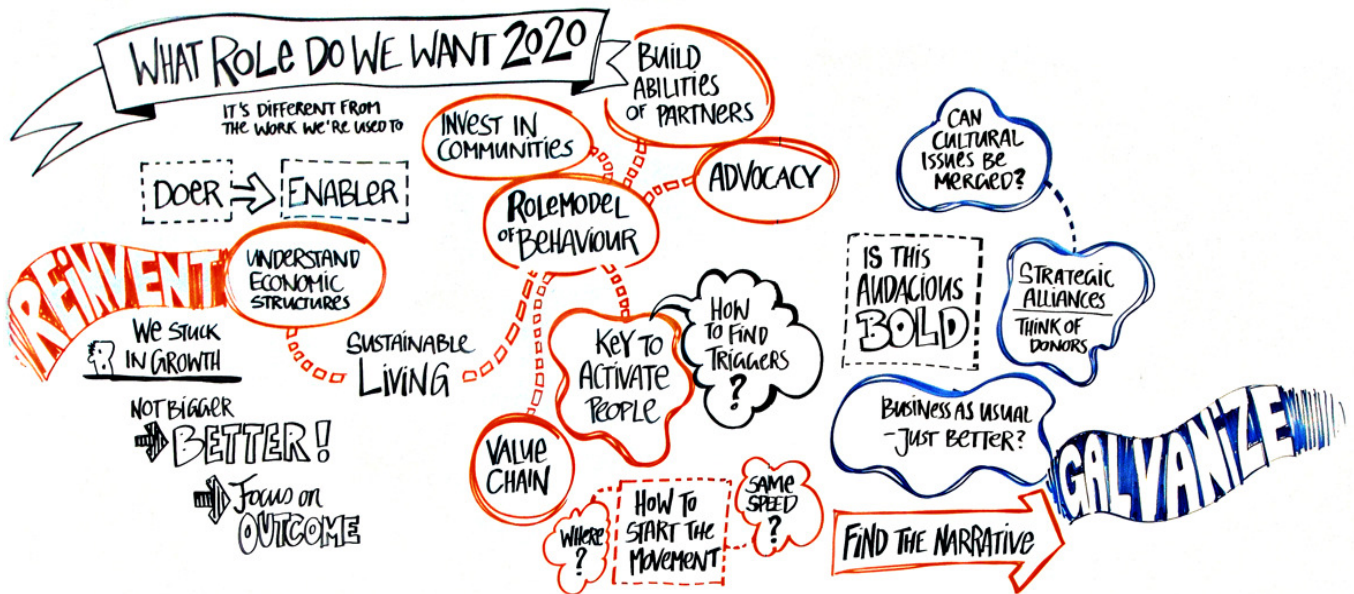 WHAT ROLE DO WE WANT 2020
IT'S DIFFERENT FROM
THE WORK WE'RE USED TO
DOER
ENABLER
REINVENT
UNDERSTAND
ECONOMIC
STRUCTURES
WE STUCK
IN GROWTH
NOT BIGGER
BETTER!
FOCUS ON
OUTCOME
SUSTAINABLE
LIVING
INVEST IN
COMMUNITIES
BUILD
ABILITIES
OF PARTNERS
ADVOCACY
ROLEMODEL
OF BEHAVIOUR
KEY TO
ACTIVATE
PEOPLE
HOW
TO FIND
TRIGGERS
?
VALUE
CHAIN
WHERE
?
HOW TO
START THE
MOVEMENT
SAME
SPEED
?
CAN
CULTURAL
ISSUES BE
MERGED?
IS THIS
AUDACIOUS
BOLD
STRATEGIC
ALLIANCES
THINK OF
DONORS
BUSINESS AS USUAL
-JUST BETTER?
FIND THE NARRATIVE
GALVANIZE